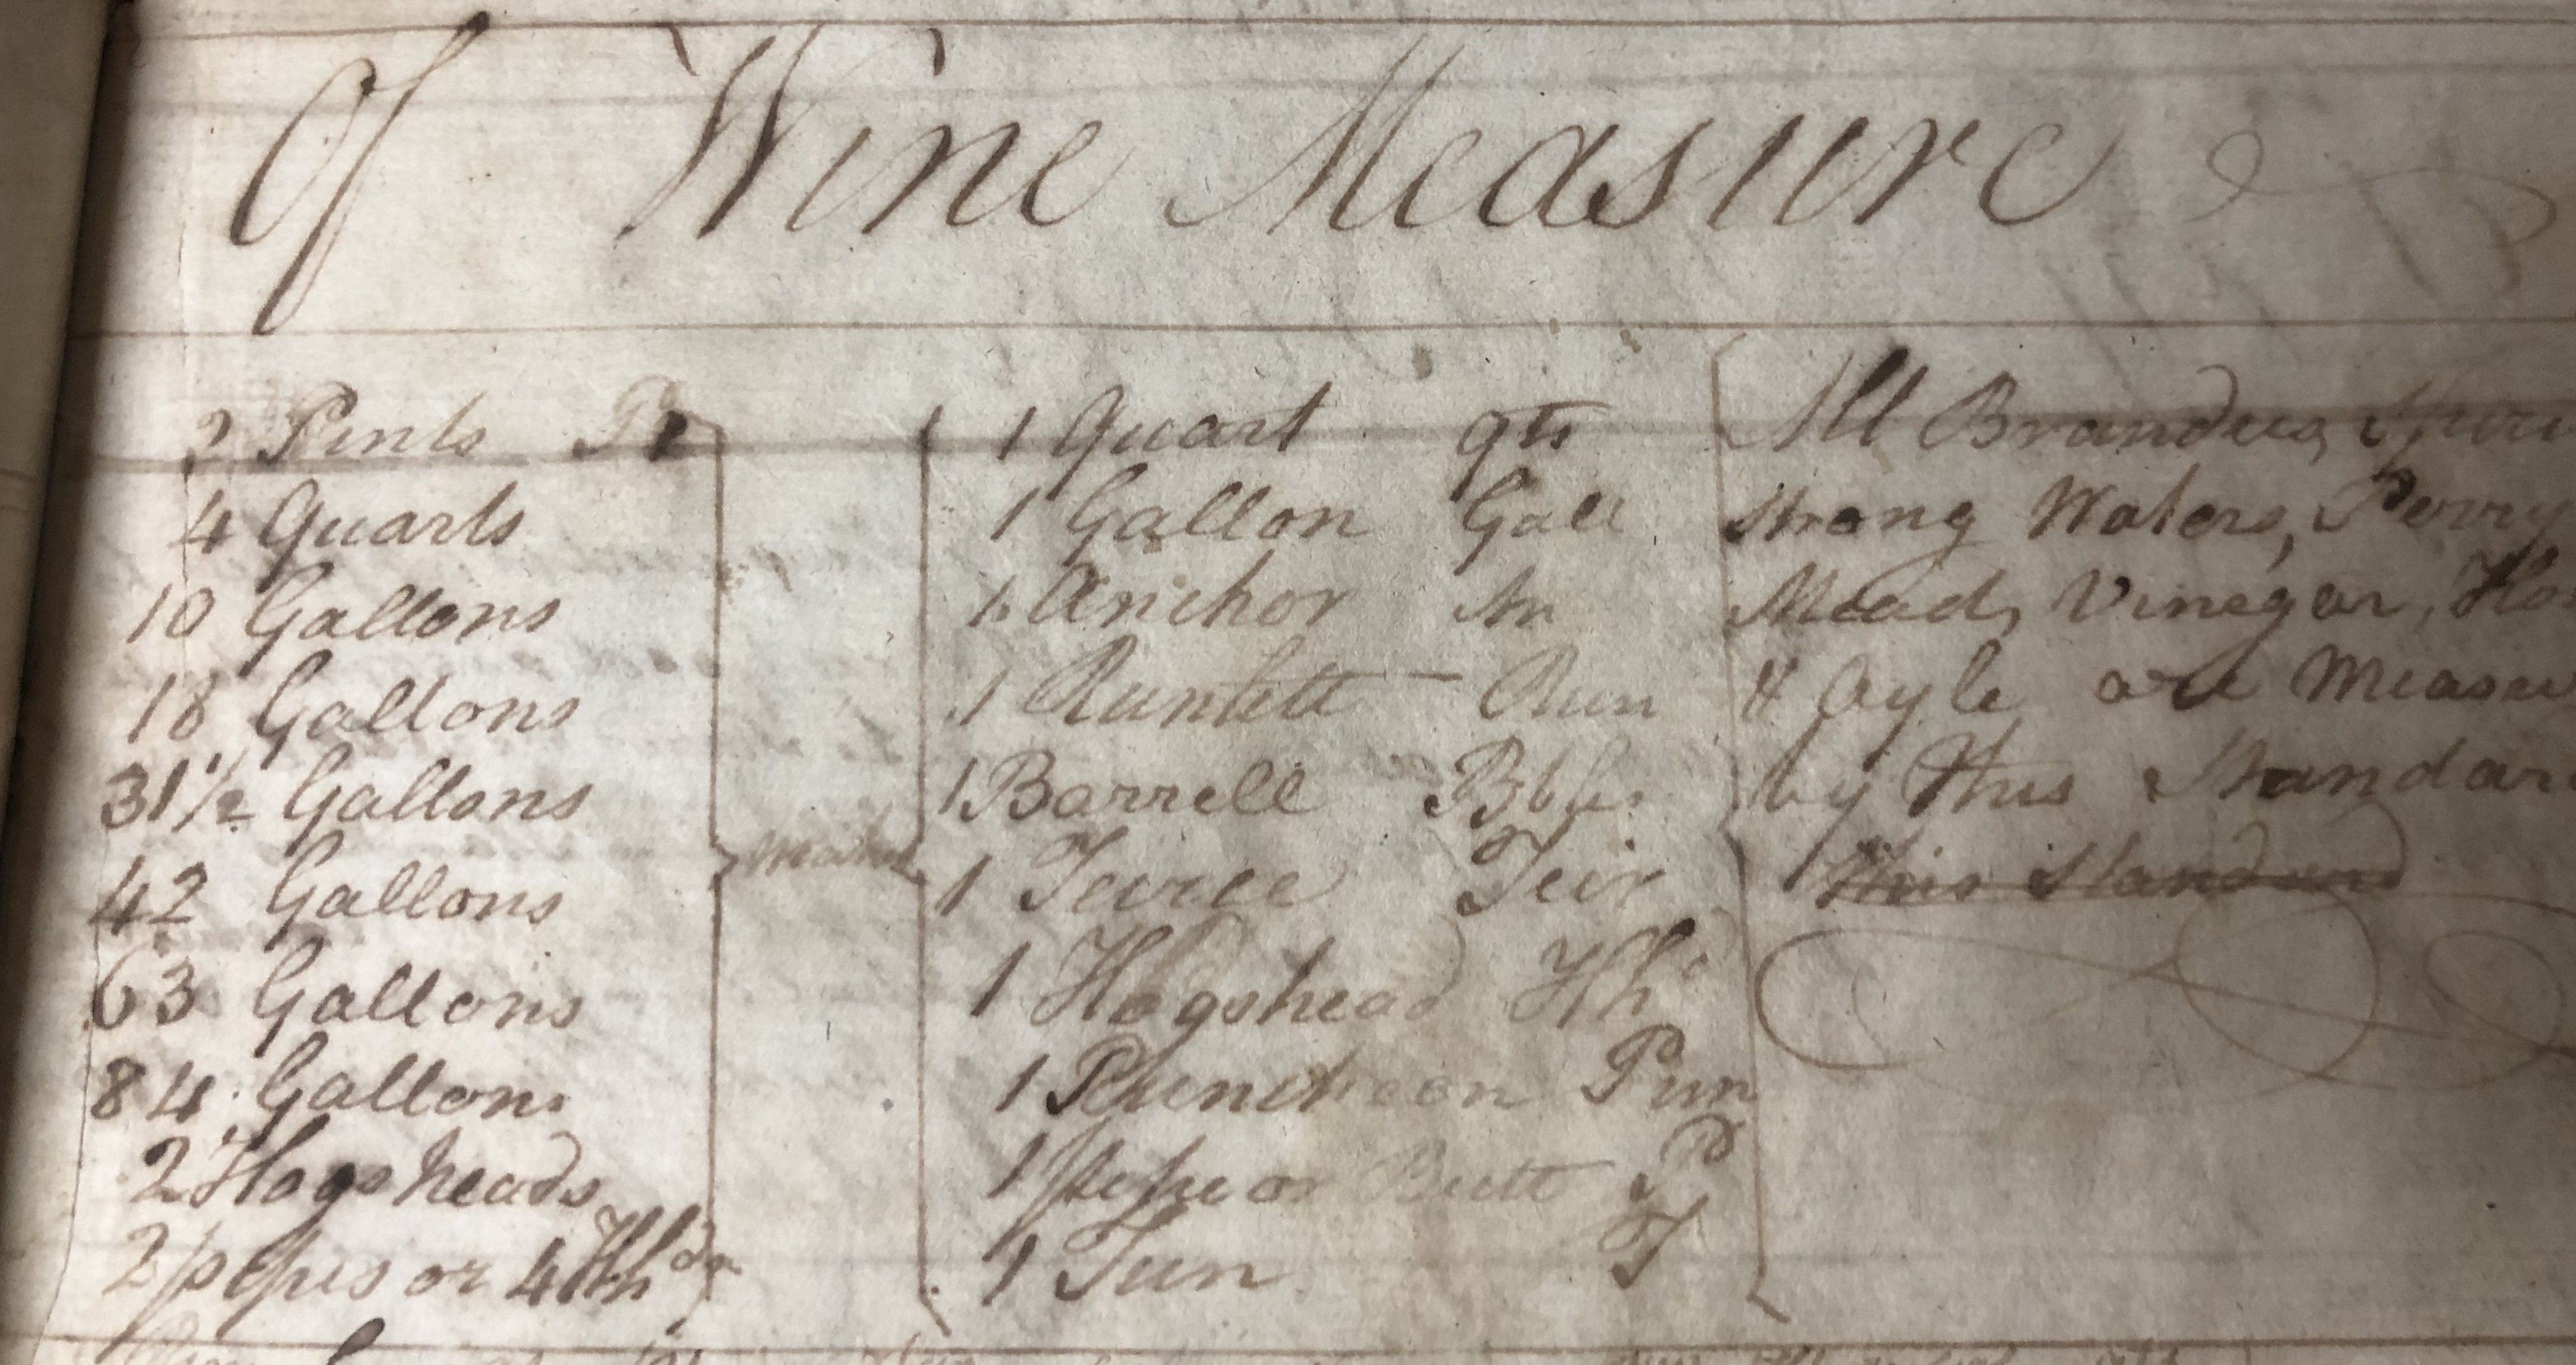 Of Wine Measure
2 Pints Pt 1 Quart qts All Brandies,
4 Quarts 1 Gallon Gall Strong Waters, Perry
10 Gallons 1 Anchor An Mead, Vinegar,
18 Gallons 1 Runlett Run & Oyle are Measu
31 1/2 Gallons 1 Barrell Bbls by this Standar
make
42 Gallons 1 Teirce Teir This Standard
63 Gallons 1 Hogshead Hhd
84 Gallons 1 Puncheon Pun
2 Hogsheads 1 pipe or Butt P
2 pipes or 4 Hhds 1 Tun T